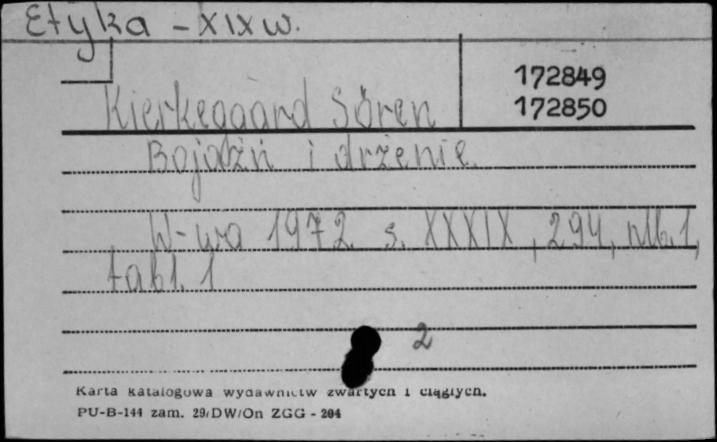 Etyka - XIX w.
172849
Kierkegaard Sören 172850
Bojaźń i drżenie.
W-wa 1972 s. XXXIX, 294, nlb. 1,
tabl. 1
2
Karta katalogowa wydawnictw zwartych i ciągłych.
PU-B-144 zam. 29/DW/On ZGG - 204